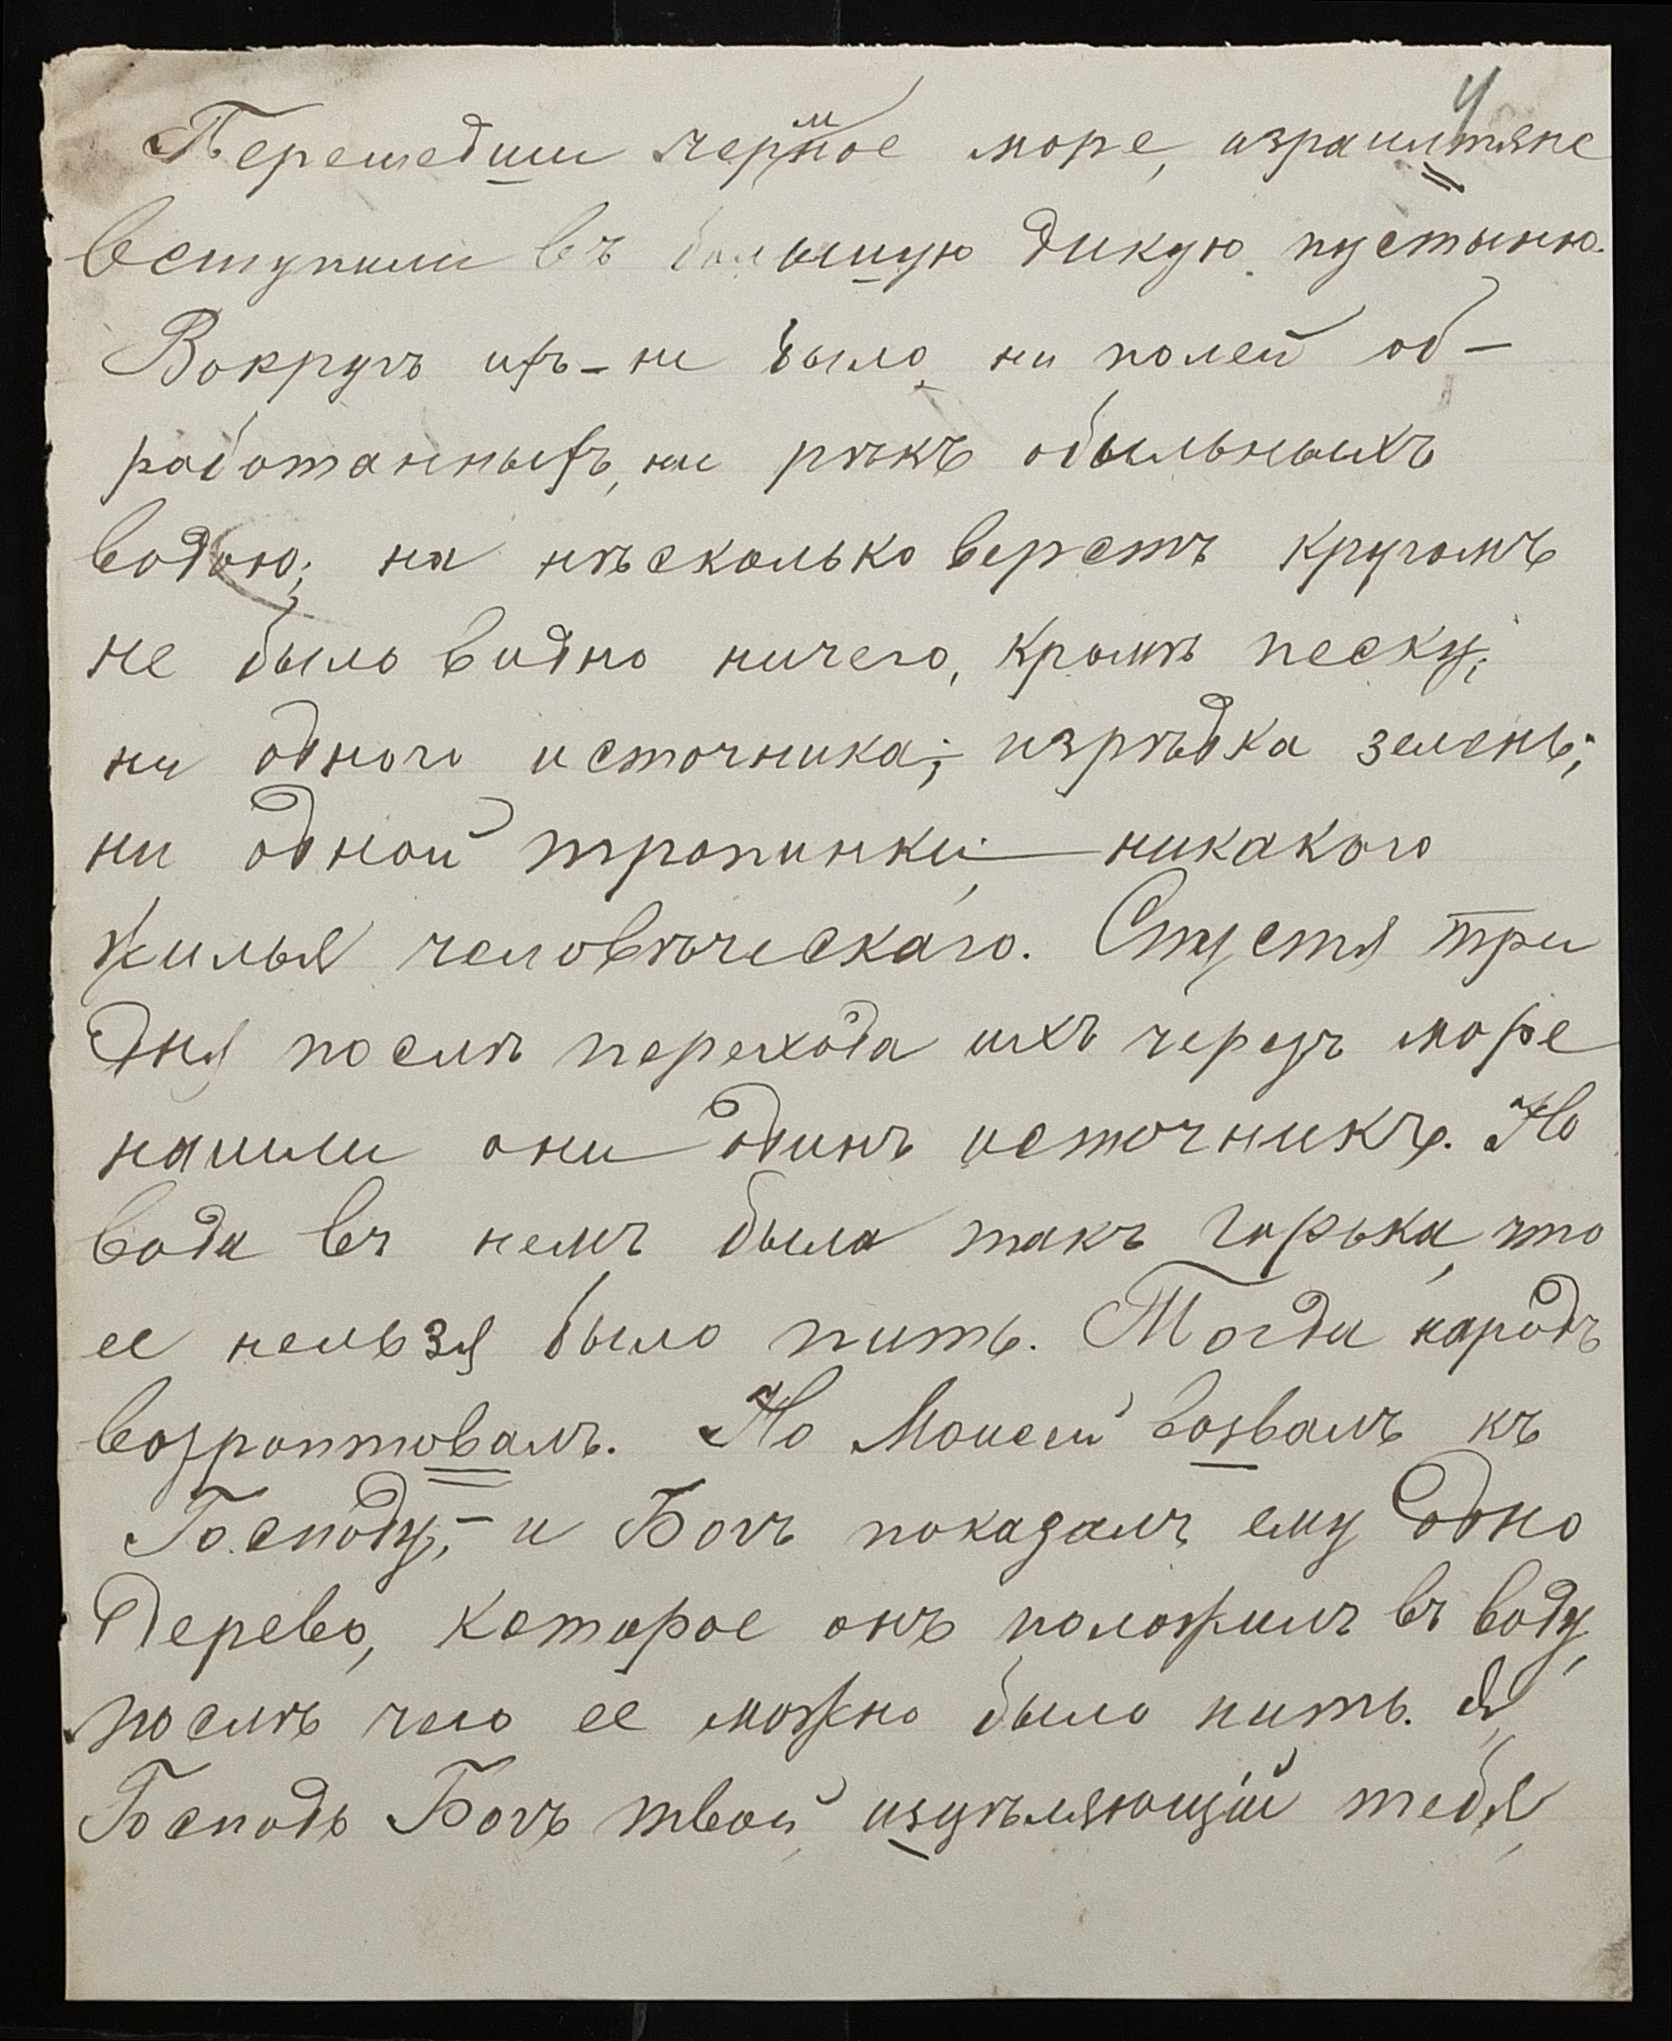 4
Перешедши чермное море, израилтяне
вступили въ большую дикую пустыню.
Вокругъ ихъ – не было ни полей об–
работанныхъ, ни рѣкъ обыльныхъ
водою; на нѣсколько верстъ кругомъ
не было видно ничего, кромѣ песку;
ни одного источника; изрѣдка зелень;
ни одной тропинки; – никакого
жилья человѣческаго. Спустя три
дня послѣ перехода ихъ черезъ море
нашли они одинъ источникъ. Но
вода въ немъ была такъ горька, что
ее нельзя было пить. Тогда народъ
возроптовалъ. Но Моисей возвалъ къ
Господу, – и Богъ показалъ ему одно
дерево, которое онъ положилъ въ воду,
послѣ чего ее можно было пить. Я,
Господь Богъ твой, изцѣляющій тебя,